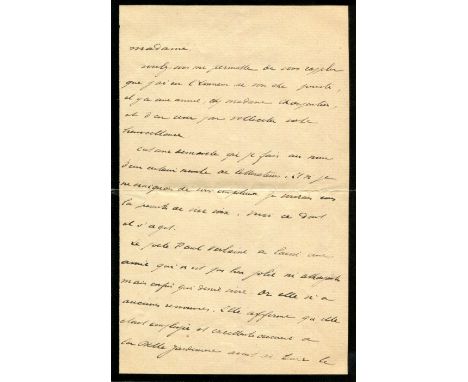 Madame
voulez vous me permettre de vous rappeler
que j'ai eu l'honneur de vous être
il y a une année, chez madame Charpentier,
et d'oser pour solliciter votre
bienveillance
C'est une démarche que je fais au nom
d'un certain nombre de littérateurs, et si je
ne craignais de vous je vous
la de vive voix. Voici ce dont
il s'agit.
Le poète Paul Verlaine a laissé une
amie qui n'est pas bien jolie ni
mais enfin qui désire vivre. Or elle n'a
aucunes ressources. Elle affirme qu'elle
était employée et excellente ouvrière à
la Belle Jardinière avant de le